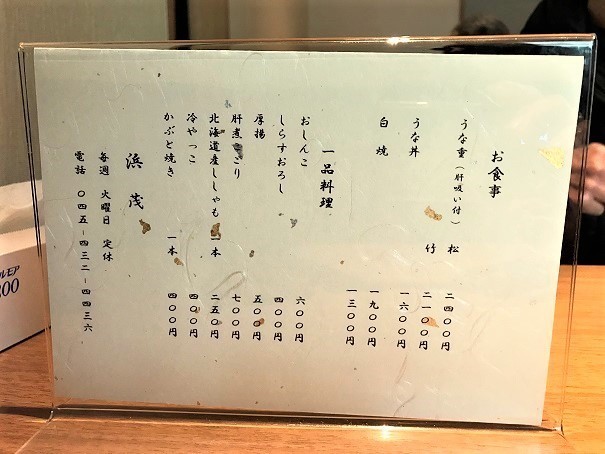 お食事
うな重(肝吸い付) 松 二四〇〇円
竹 二一〇〇円
うな丼 一六〇〇円
白焼 一九〇〇円
一三〇〇円
一品料理
おしんこ 六〇〇円
しらすおろし 四〇〇円
厚揚 五〇〇円
肝煮こごり 七〇〇円
北海道産ししゃも 一本 二五〇円
冷やっこ 四〇〇円
かぶと焼き 一本 四〇〇円
浜茂
毎週 火曜日 定休
電話 〇四五ー四三二ー四四三六